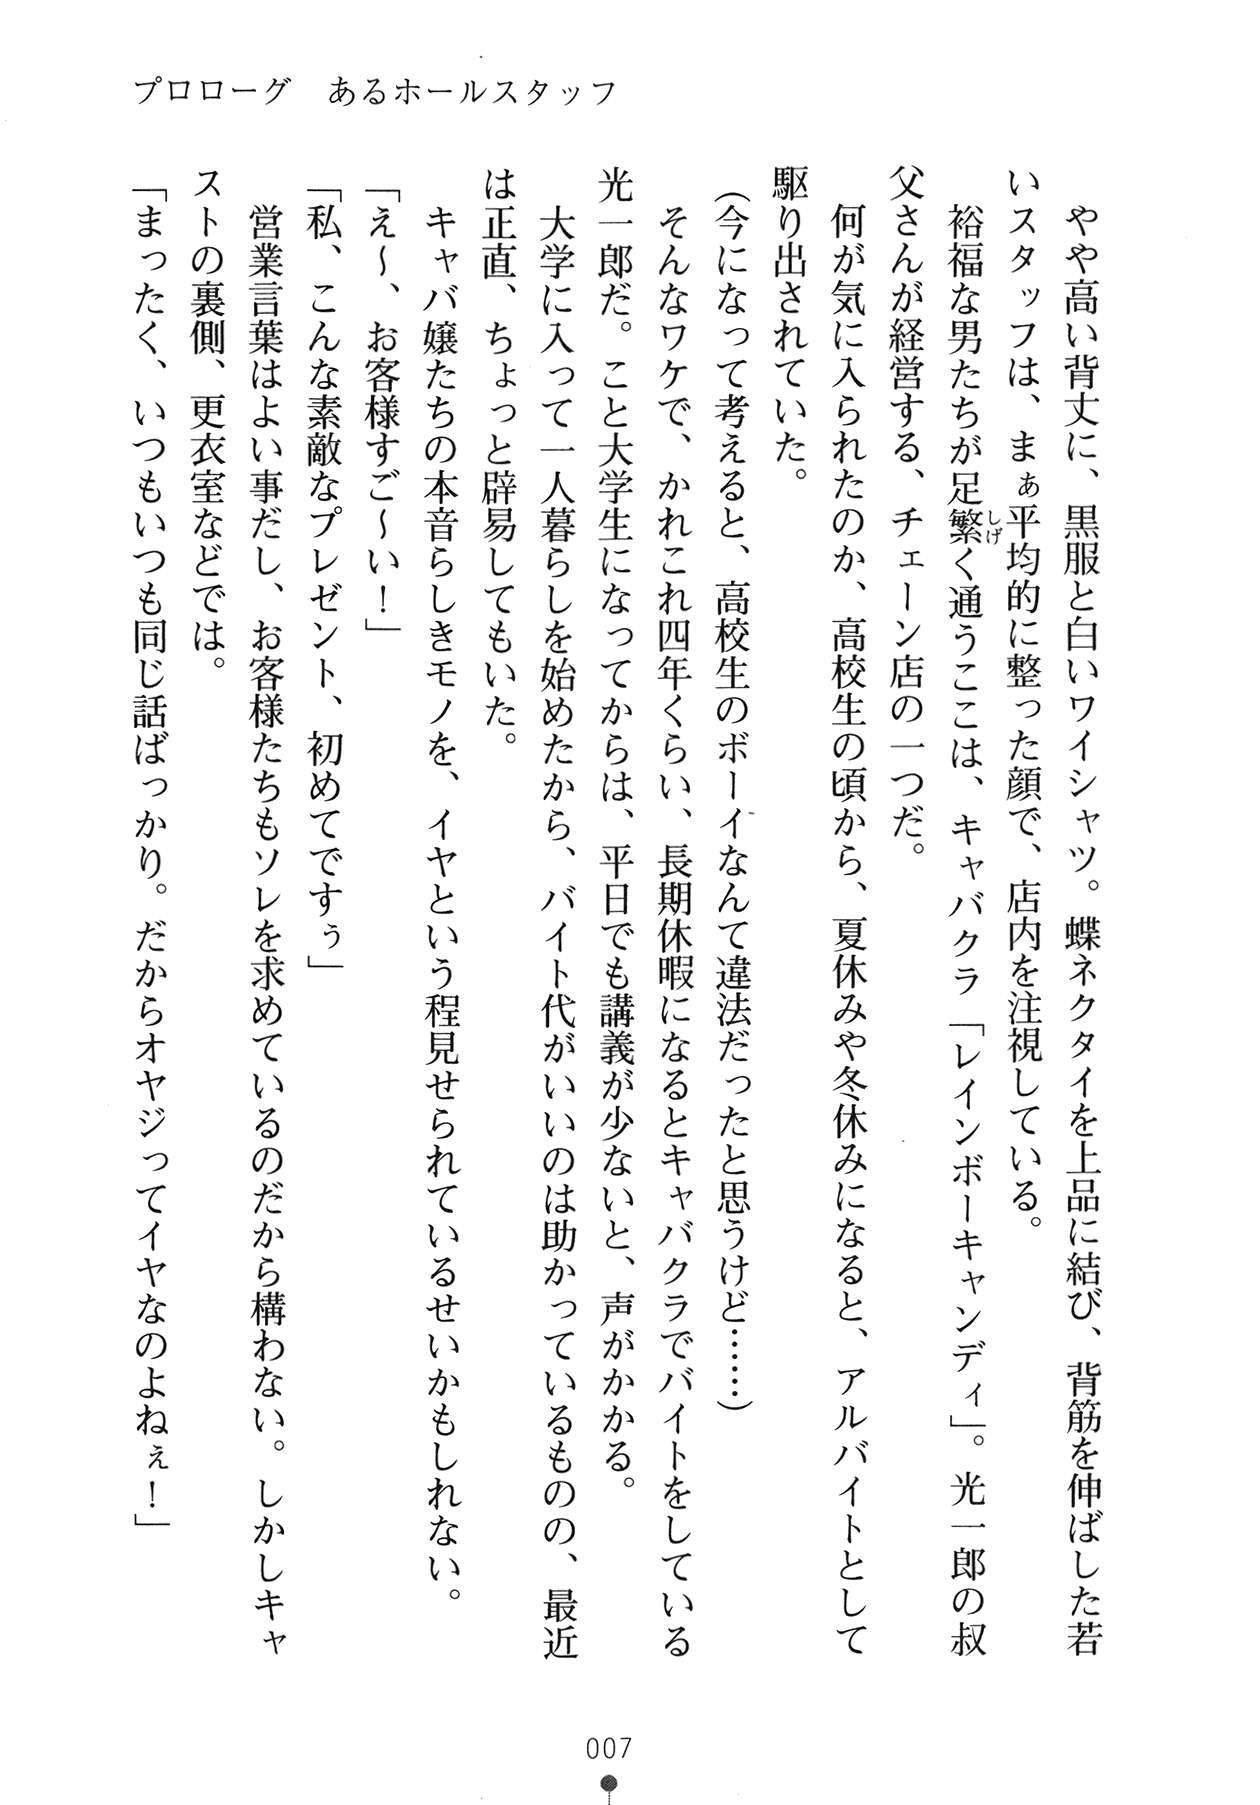 プロローグ　あるホールスタッフ
　やや高い背丈に、黒服と白いワイシャツ。蝶ネクタイを上品に結び、背筋を伸ばした若
いスタッフは、まぁ平均的に整った顔で、店内を注視している。
　裕福な男たちが足繁く通うここは、キャバクラ「レインボーキャンディ」。光一郎の叔
しげ
父さんが経営する、チェーン店の一つだ。
　何が気に入られたのか、高校生の頃から、夏休みや冬休みになると、アルバイトとして
駆り出されていた。
（今になって考えると、高校生のボーイなんて違法だったと思うけど……）
　そんなワケで、かれこれ四年くらい、長期休暇になるとキャバクラでバイトをしている
光一郎だ。こと大学生になってからは、平日でも講義が少ないと、声がかかる。
　大学に入って一人暮らしを始めたから、バイト代がいいのは助かっているものの、最近
は正直、ちょっと辟易してもいた。
　キャバ嬢たちの本音らしきモノを、イヤという程見せられているせいかもしれない。
「え～、お客様すご～い！」
「私、こんな素敵なプレゼント、初めてですぅ」
　営業言葉はよい事だし、お客様たちもソレを求めているのだから構わない。しかしキャ
ストの裏側、更衣室などでは。
「まったく、いつもいつも同じ話ばっかり。だからオヤジってイヤなのよねぇ！」
007